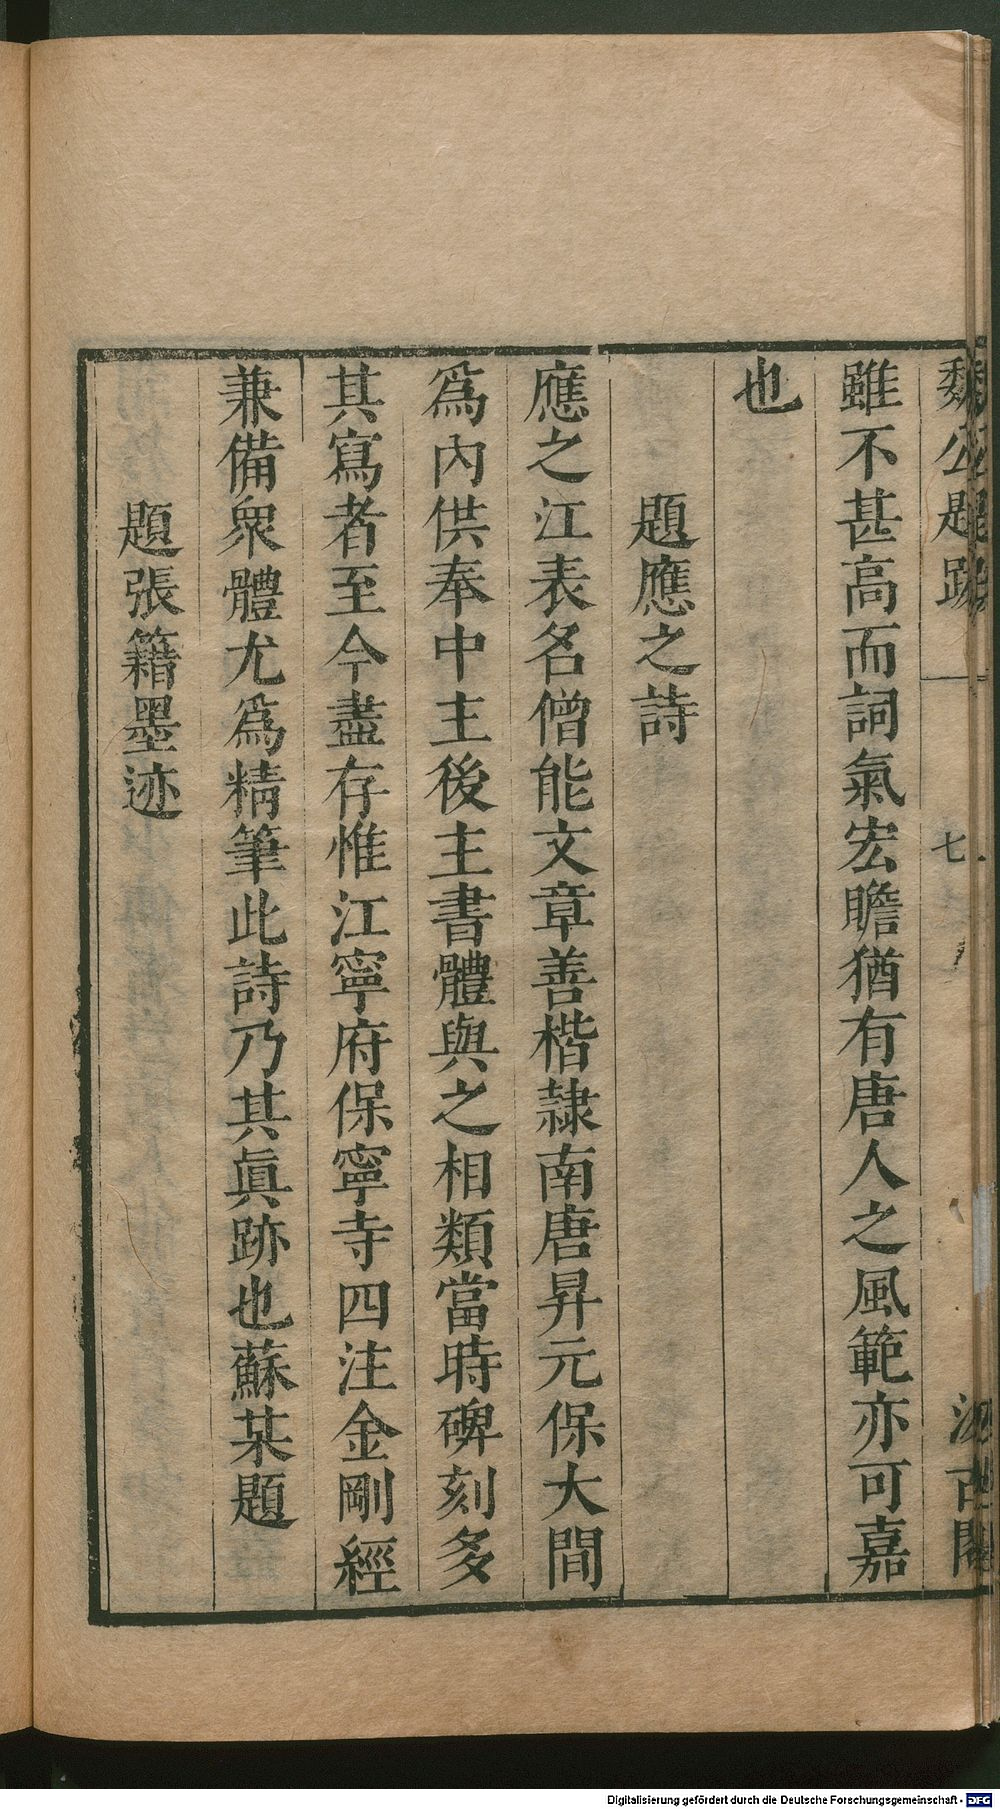 魏公題跋
七
汲古閣
雖不甚高而詞氣宏贍猶有唐人之風範亦可嘉
也
題應之詩
應之江表名僧能文章善楷隷南唐昇元保大間
爲內供奉中主後主書體與之相類當時碑刻多
其寫者至今盡存惟江寧府保寧寺四注金剛經
兼備衆體尤爲精筆此詩乃其眞跡也蘇某題
題張籍墨迹
Digitalisierung gefördert durch die Deutsche Forschungsgemeinschaft - DFG